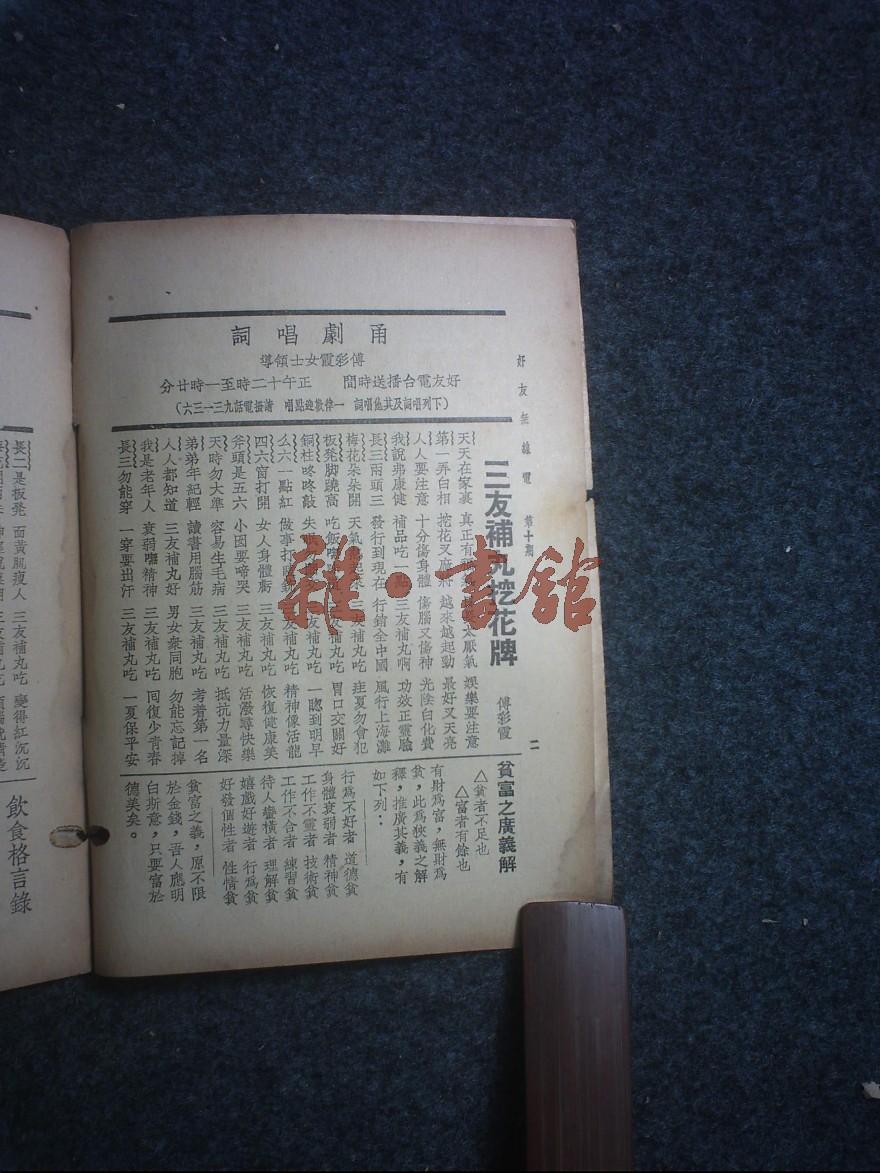 好友無線電 第十期
二
詞唱劇甬
導領士女霞彩傅
分廿時一至時二十午正 間時送播台電友好
(六三一三九話電播請 唱點迎歡律一 詞唱他其及詞唱列下)
三友補丸挖花牌 傅彩霞
天天在家裏 真正有 太厭氣 娛樂要注意
第一弄白相 挖花又麻 越來越起勁 最好又天亮
人人要注意 十分傷身體 傷腦又傷神 光陰白化費
我說弗康健 補品吃一點 三友補丸啊 功效正靈驗
長三兩頭三 發行到現在 行銷全中國 風行上海灘
梅花朵朵開 天氣 三友補丸吃 疰夏勿會犯
板凳脚蹺高 吃飯 友補丸吃 胃口交關好
銅柱咚咚敲 失眠 補丸吃 一聰到明早
么六一點紅 做事打 三友補丸吃 精神像活龍
四六窗打開 女人身體虧 三友補丸吃 恢復健康美
斧頭是五六 小因要啼哭 三友補丸吃 活潑尋快樂
天時勿大準 容易生毛病 三友補丸吃 抵抗力量深
弟弟年紀輕 讀書用腦筋 三友補丸吃 考着第一名
人人都知道 三友補丸好 男女衆同胞 勿能忘記掉
我是老年人 衰弱嘸精神 三友補丸吃 回復少青春
長三勿能穿 一穿要出汗 三友補丸吃 一夏保平安
貧富之廣義解
△貧者不足也
△富者有餘也
有財為富，無財為
貧，此為狹義之解
釋，推廣其義，有
如下列：
行為不好者 道德貧
身體衰弱者 精神貧
工作不靈者 技術貧
工作不合者 練習貧
待人蠻橫者 理解貧
嬉戲好遊者 行為貧
好發個性者 性情貧
貧富之義，原不限
於金錢，吾人應明
白斯意，只要富於
德美矣。
長二是板凳 面黃肌瘦人 三友補丸吃 變得紅沉沉
飲食格言錄
雜·書館